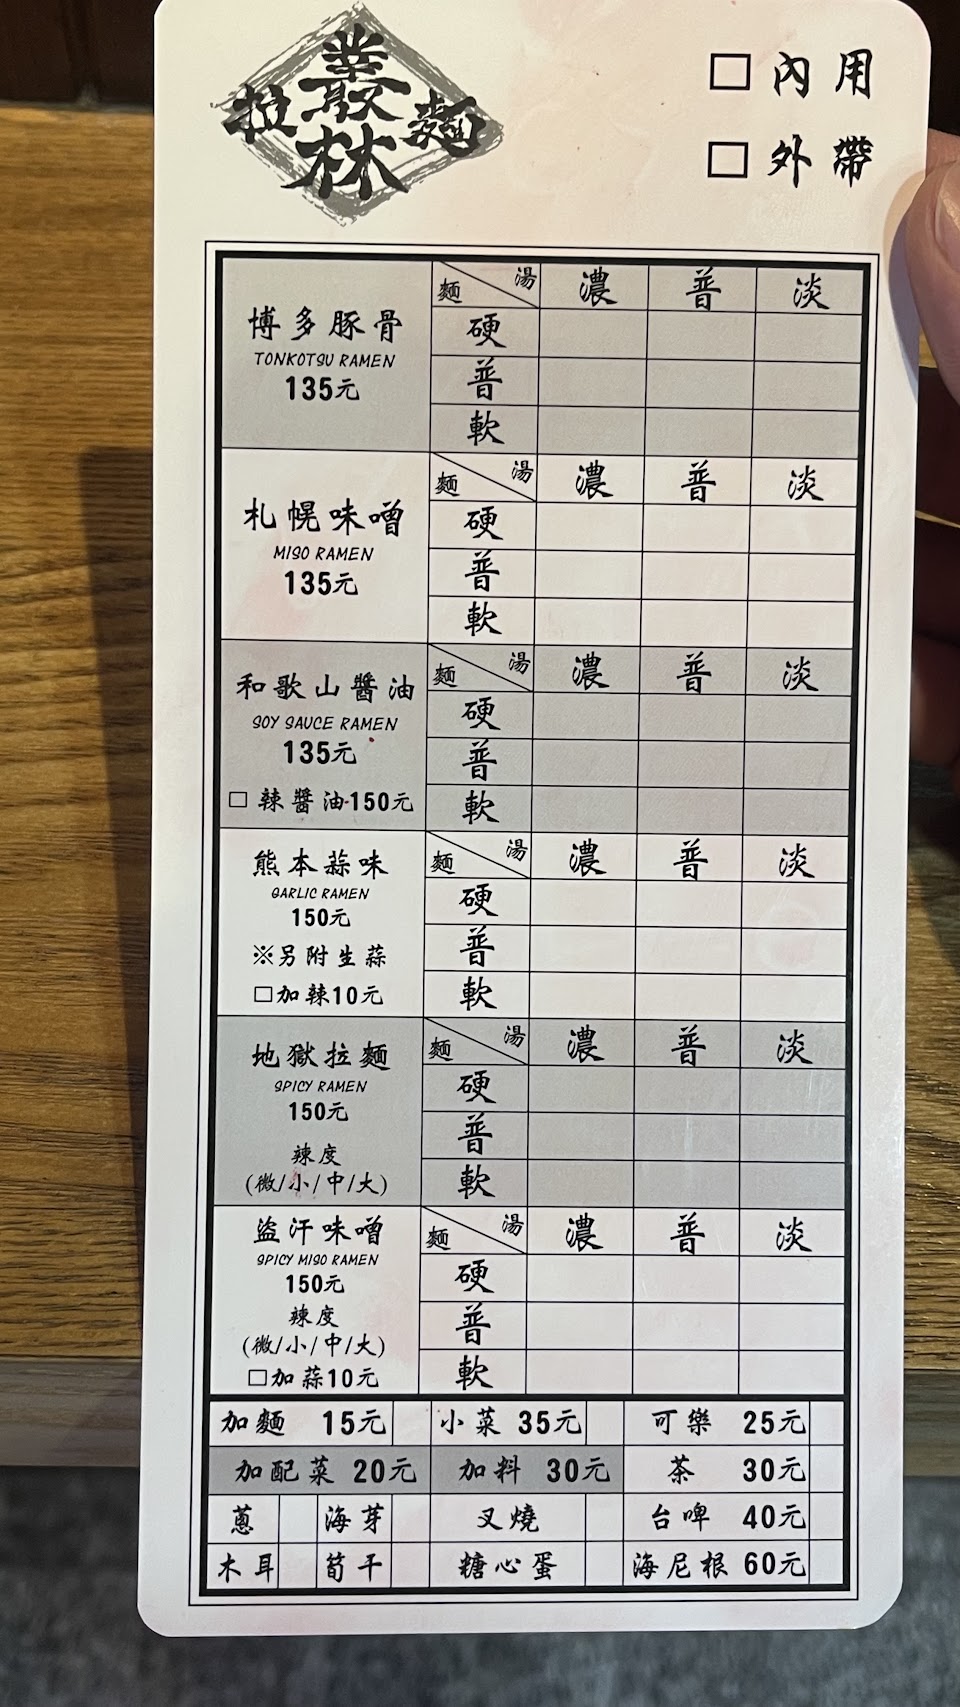 叢林
拉麵
□ 內用
□ 外帶
博多豚骨
TONKOTSU RAMEN
135元
麵 湯 濃 普 淡
硬
普
軟
札幌味噌
MISO RAMEN
135元
麵 湯 濃 普 淡
硬
普
軟
和歌山醬油
SOY SAUCE RAMEN
135元
□ 辣醬油150元
麵 湯 濃 普 淡
硬
普
軟
熊本蒜味
GARLIC RAMEN
150元
※另附生蒜
□加辣10元
麵 湯 濃 普 淡
硬
普
軟
地獄拉麵
SPICY RAMEN
150元
辣度
(微/小/中/大)
麵 湯 濃 普 淡
硬
普
軟
盜汗味噌
SPICY MISO RAMEN
150元
辣度
(微/小/中/大)
□加蒜10元
麵 湯 濃 普 淡
硬
普
軟
加麵 15元 小菜 35元 可樂 25元
加配菜 20元 加料 30元 茶 30元
蔥 海芽 叉燒 台啤 40元
木耳 筍干 糖心蛋 海尼根 60元